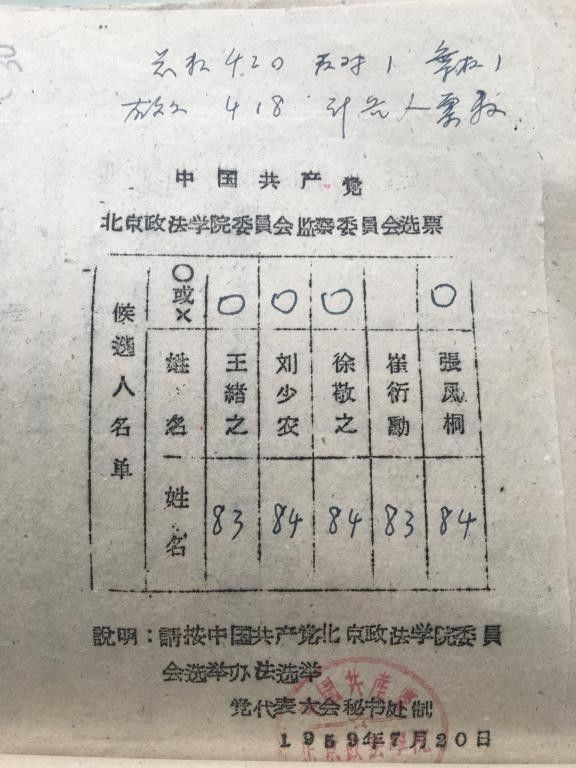 总权420 反对1 弃权1
418 计各人票数
中国共产党
北京政法学院委員会监察委員会选票
候选人名单
〇或× 〇 〇 〇 〇
姓名 王緒之 刘少农 徐敬之 崔衍勳 張凤桐
姓名 83 84 84 83 84
說明：請按中国共产党北京政法学院委員
会选举办法选举
党代表大会秘书处制
1959年7月20日